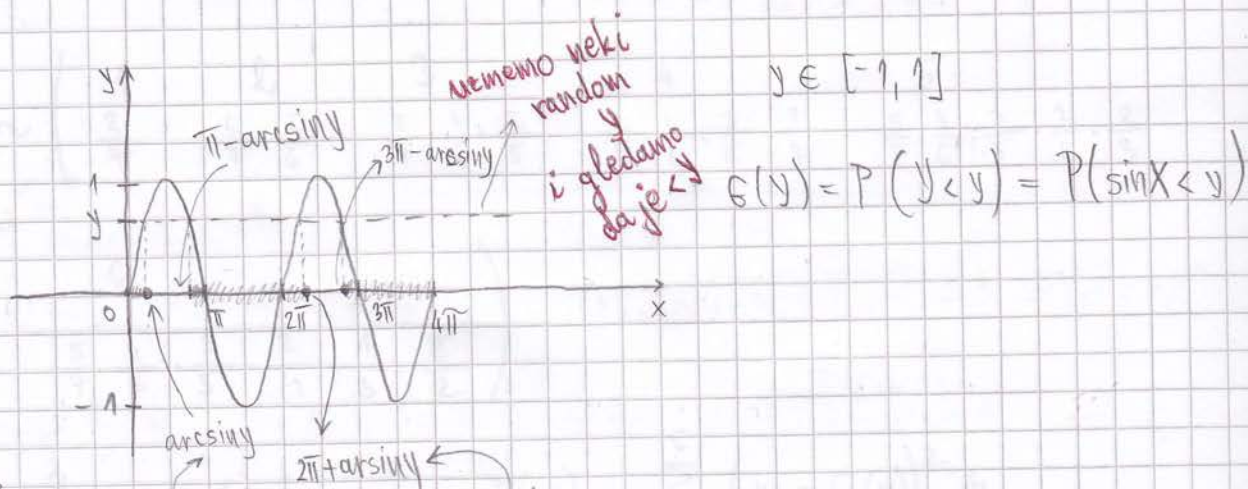 y
π-arcsiny
3π-arcsiny
uzmemo neki
random
y
i gledamo
da je < y
y ∈ [-1, 1]
G(y) = P(Y<y) = P(sinX<y)
1
y
0
π
2π
3π
4π
x
-1
arcsiny
2π+arsiny